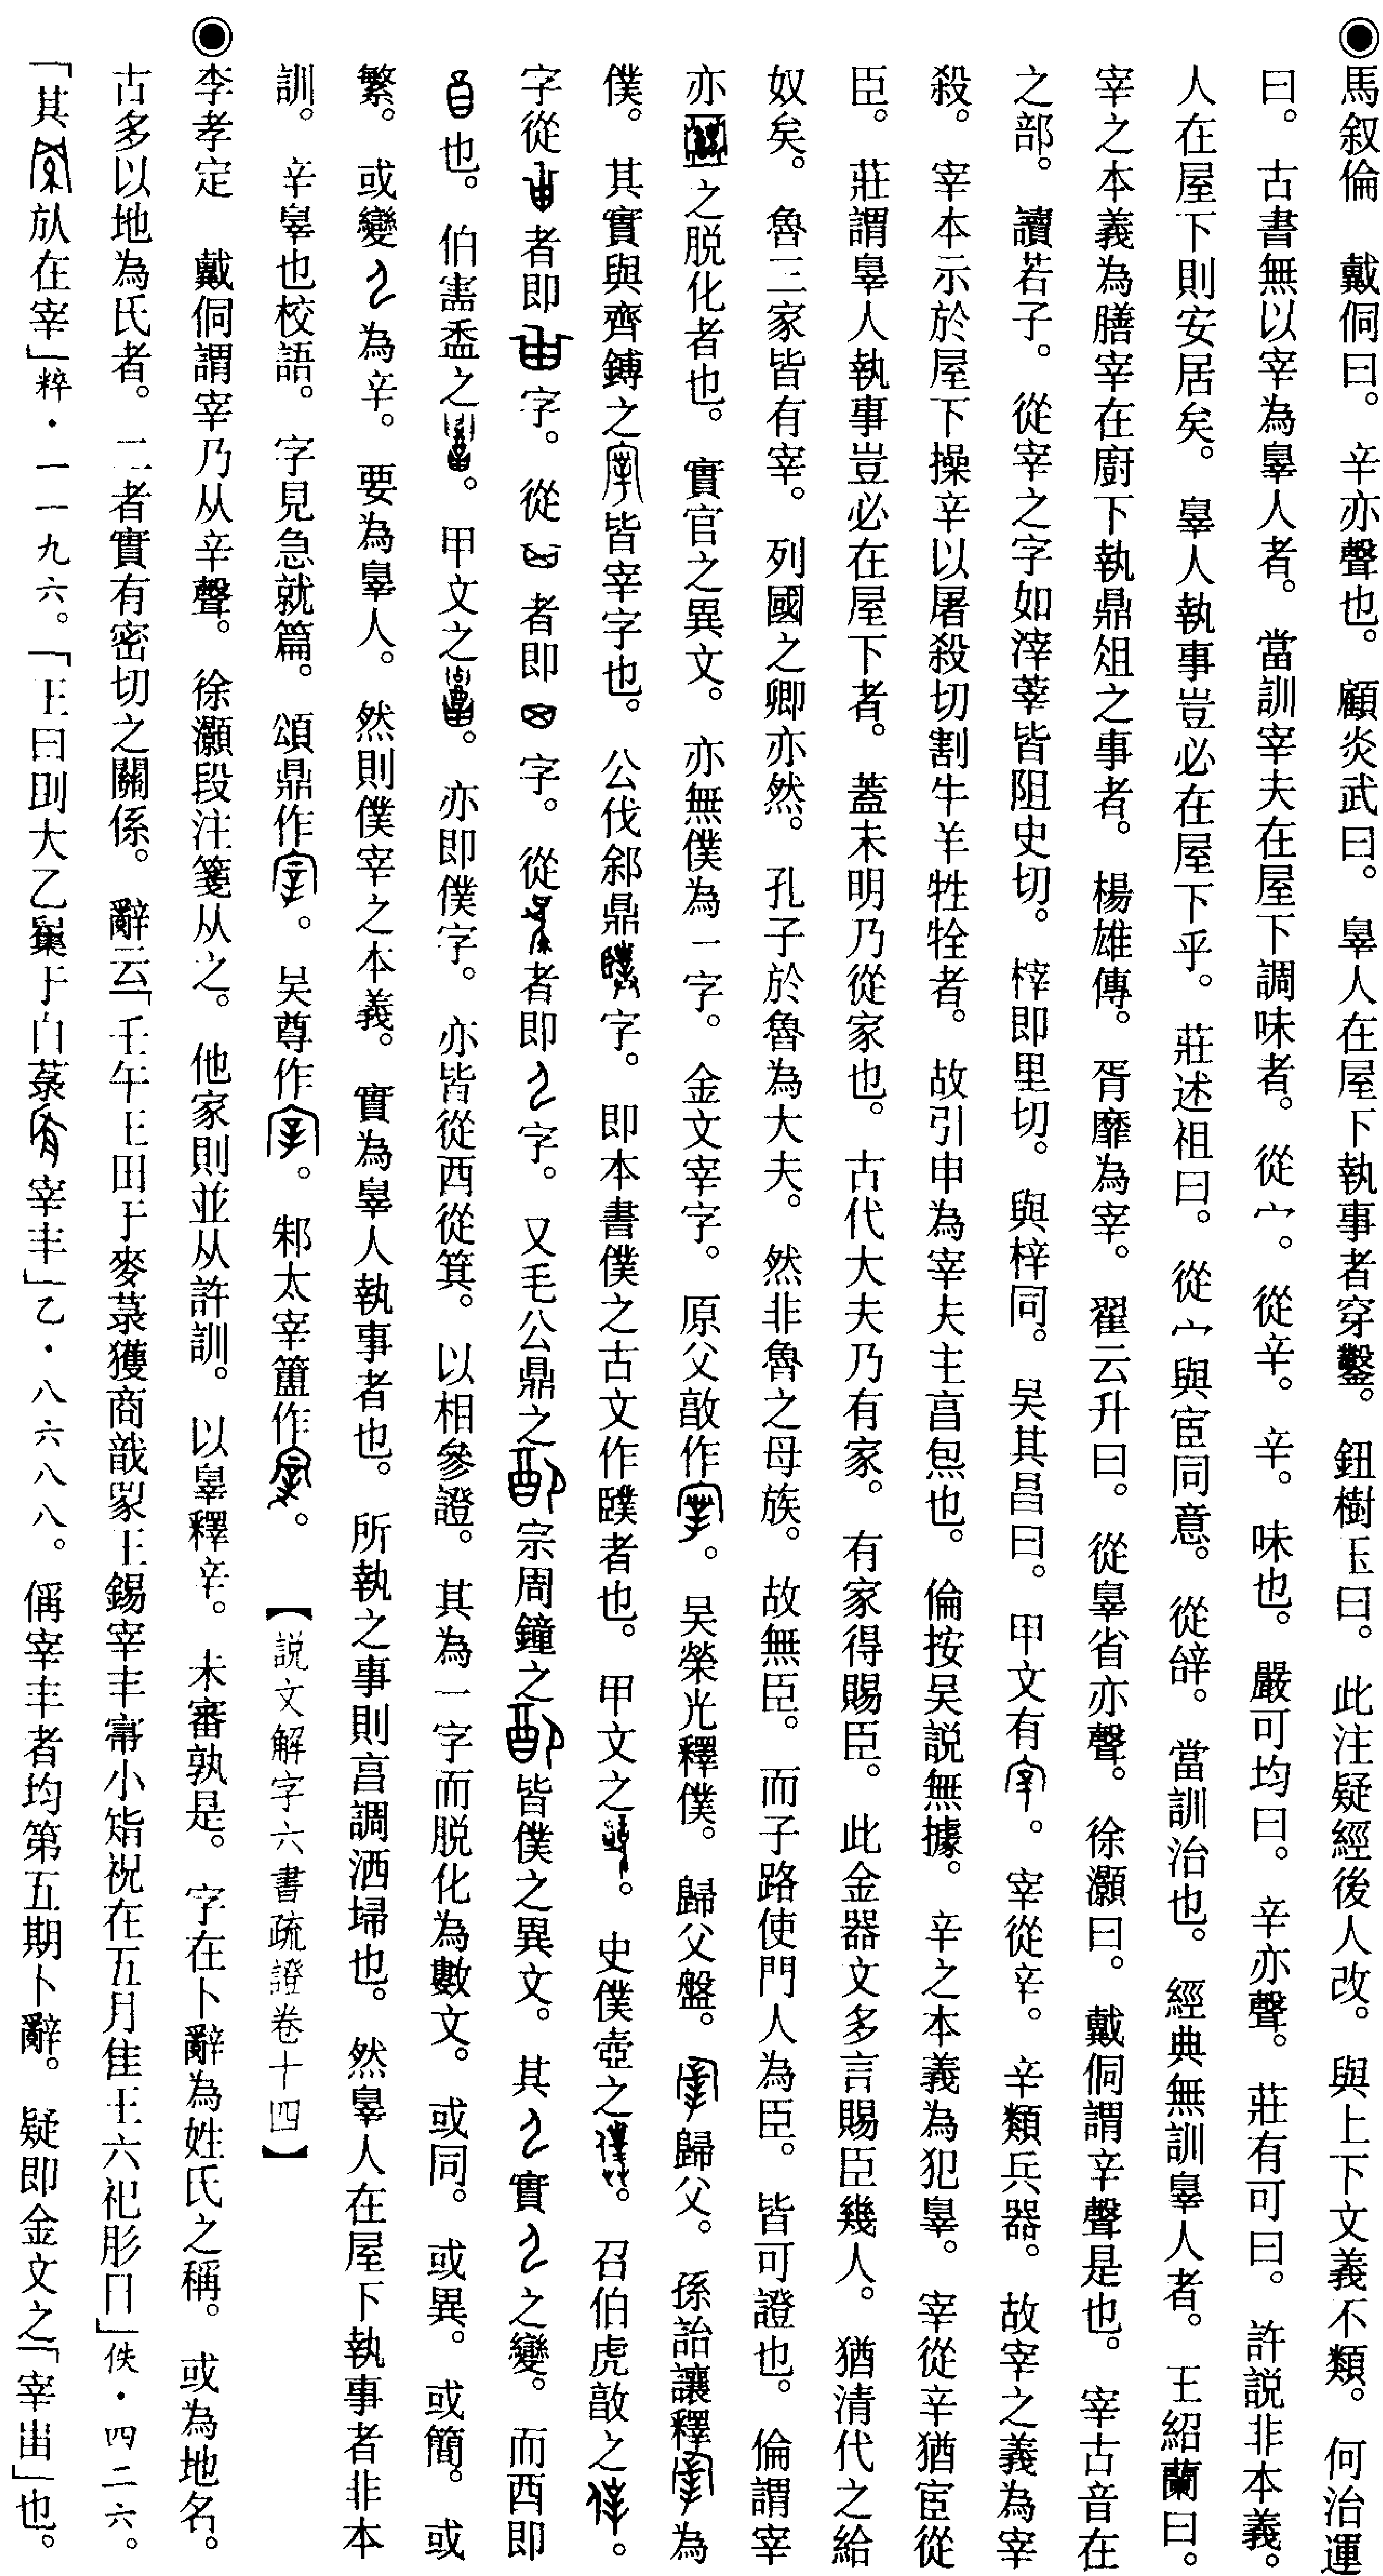 ◉馬叙倫　戴侗曰。辛亦聲也。顧炎武曰。辠人在屋下執事者穿鑿。鈕樹玉曰。此注疑經後人改。與上下文義不類。何治運
曰。古書無以宰為辠人者。當訓宰夫在屋下調味者。從宀。從辛。辛。味也。嚴可均曰。辛亦聲。莊有可曰。許説非本義。
人在屋下則安居矣。辠人執事豈必在屋下乎。莊述祖曰。從宀與宦同意。從辝。當訓治也。經典無訓辠人者。王紹蘭曰。
宰之本義為膳宰在廚下執鼎俎之事者。楊雄傳。胥靡為宰。翟云升曰。從辠省亦聲。徐灝曰。戴侗謂辛聲是也。宰古音在
之部。讀若子。從宰之字如滓莘皆阻史切。梓即里切。與梓同。吴其昌曰。甲文有。宰從辛。辛類兵器。故宰之義為宰
殺。宰本示於屋下操辛以屠殺切割牛羊牲牷者。故引申為宰夫主亯包也。倫按吴説無據。辛之本義為犯辠。宰從辛猶宦從
臣。莊謂辠人執事豈必在屋下者。蓋未明乃從家也。古代大夫乃有家。有家得賜臣。此金器文多言賜臣幾人。猶清代之給
奴矣。魯三家皆有宰。列國之卿亦然。孔子於魯為大夫。然非魯之母族。故無臣。而子路使門人為臣。皆可證也。倫謂宰
亦之脱化者也。實官之異文。亦無僕為一字。金文宰字。原父敢作。吴榮光釋僕。歸父盤。歸父。孫詒讓釋為
僕。其實與齊鎛之皆宰字也。公伐郐鼎字。即本書僕之古文作䑑者也。甲文之。史僕壺之。召伯虎敢之。
字從者即字。從者即字。從者即字。又毛公鼎之宗周鐘之皆僕之異文。其實之變。而西即
也。伯害盉之。甲文之。亦即僕字。亦皆從西從箕。以相參證。其為一字而脱化為數文。或同。或異。或簡。或
繁。或變為辛。要為辠人。然則僕宰之本義。實為辠人執事者也。所執之事則亯調洒埽也。然辠人在屋下執事者非本
訓。辛辠也校語。字見急就篇。頌鼎作。吴尊作。邾太宰簠作。【説文解字六書疏證卷十四】
◉李孝定　戴侗謂宰乃从辛聲。徐灝段注箋从之。他家則並从許訓。以辠釋辛。未審孰是。字在卜辭為姓氏之稱。或為地名。
古多以地為氏者。二者實有密切之關係。辭云「壬午王田于麥彔獲商戠兕王錫宰丰𡨦小𥎿祝在五月隹王六祀肜日」佚·四二六。
「其㫃在宰」粹·一一九六。「王曰則大乙于白彔宰丰」乙·八六八八。偁宰丰者均第五期卜辭。疑即金文之「宰甾」也。